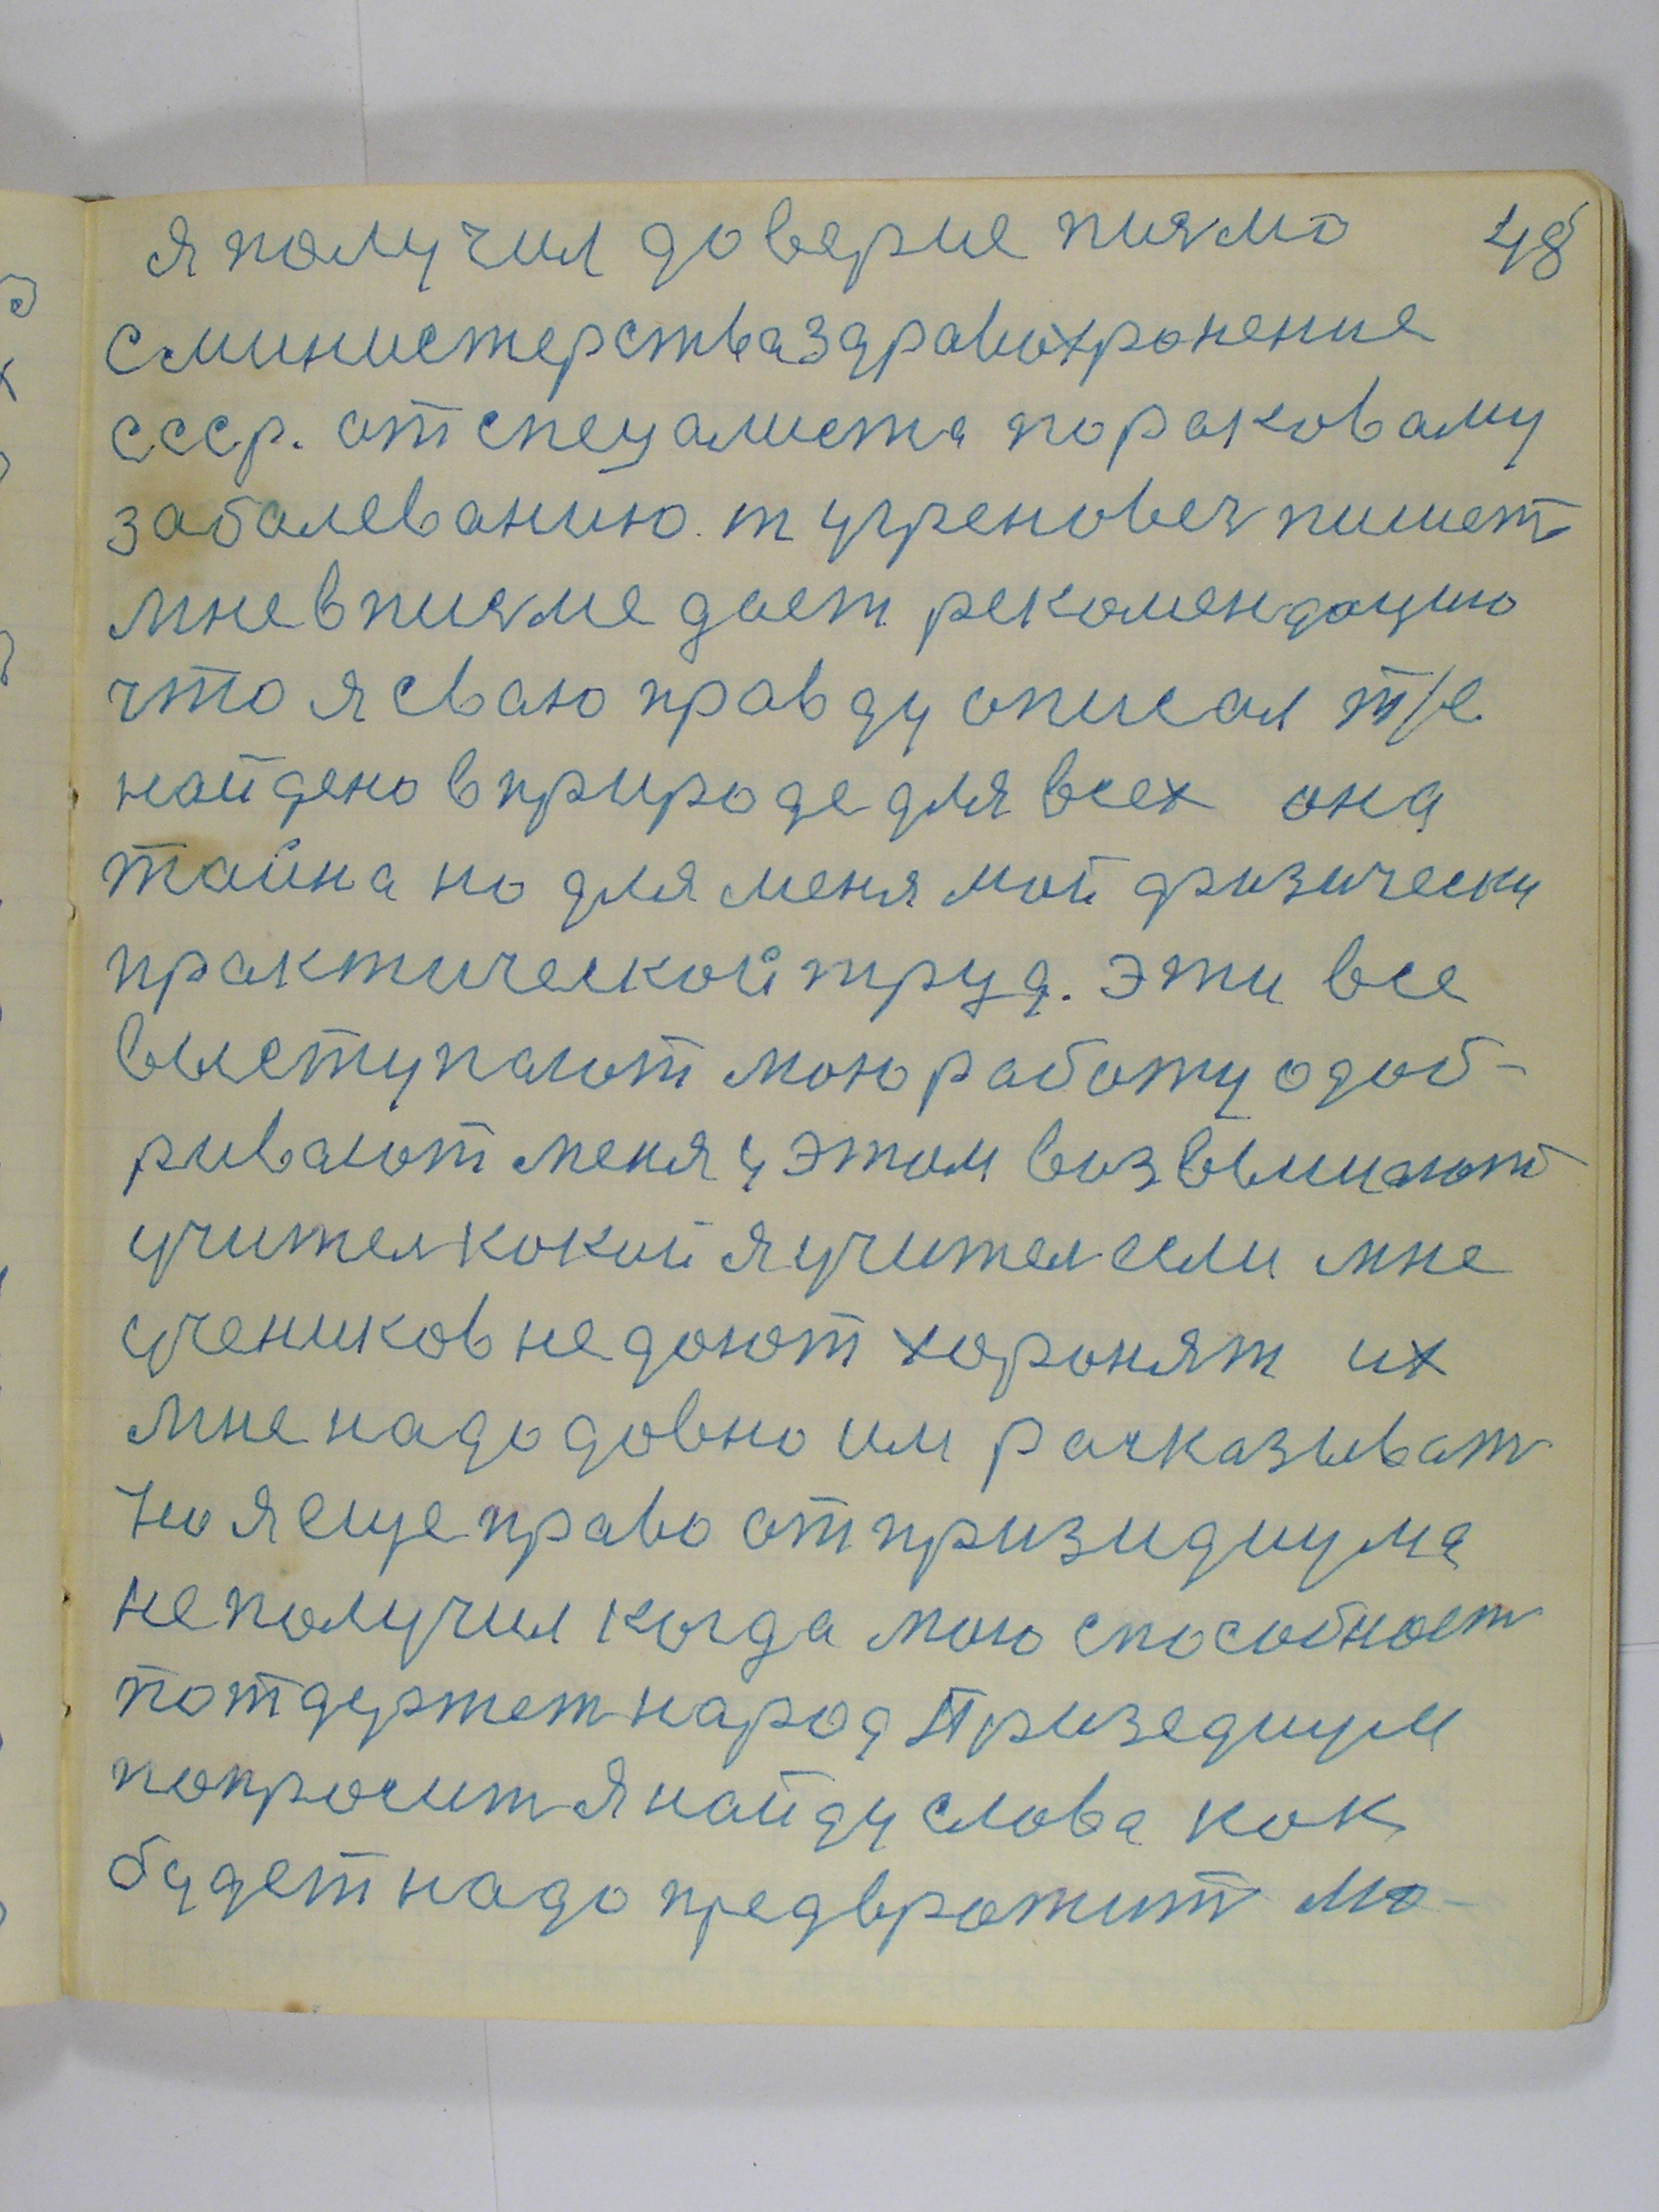 я получил доверие писмо 48
с министерства здравохронение
ссср. от спецалиста по раковаму
забалеванию. т угреновеч пишет
мне в писме дает рекомендацию
что я сваю правду описал т/е
найдено в природе для всех она
тайна но для меня мой физически
практической труд. эти все
выступают мою работу одоб-
ривают меня у этом возвышают
учител кокой я учител если мне
учеников не дают хоронят их
мне надо довно им расказыват
но я еще право от призидиума
не получил когда мою способност
потдержет народ Призедиум
попросит я найду слова как
будет надо предвротит мо-